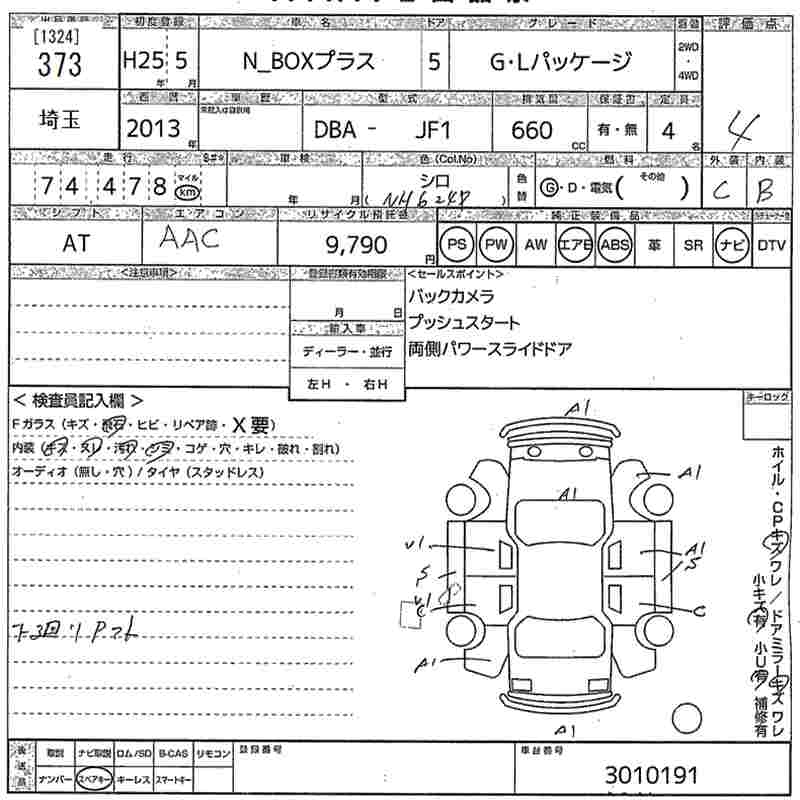 初度登録 車名 ドア グレード 評価点
[1324]
373
H25 5 N_BOXプラス 5 G・Lパッケージ 2WD・4WD
年 月
埼玉
西暦 車歴 型式 排気量 保証書 定員
2013年 DBA - JF1 660 CC 有・無 4名 4
走行 車検 色(Col.No) 燃料 外装 内装
74478 マイル km 年 月 シロ 色替 G・D・電気( その他 ) C B
シフト エアコン リサイクル預託金 純正装備品
AT AAC 9,790円 PS PW AW エアB ABS 革 SR ナビ DTV
<注意事項> 登録書類有効期限 <セールスポイント>
月 日 バックカメラ
輸入車 プッシュスタート
ディーラー・並行 両側パワースライドドア
左H ・ 右H
キーロック
< 検査員記入欄 >
Fガラス (キズ・飛石・ヒビ・リペア跡・X要)
内装 (キズ・スレ・汚れ・シミ・コゲ・穴・キレ・破れ・割れ)
オーディオ (無し・穴) / タイヤ (スタッドレス)
A1
A1
A1
V1 A1
S S
V1
C C
A1
A1
ホイル・CPキズワレ / ドアミラーキズワレ
小キズ有 小U有 補修有
後送品 取説 ナビ取説 ロム/SD B-CAS リモコン 登録番号 車台番号
ナンバー スペアキー キーレス スマートキー 3010191